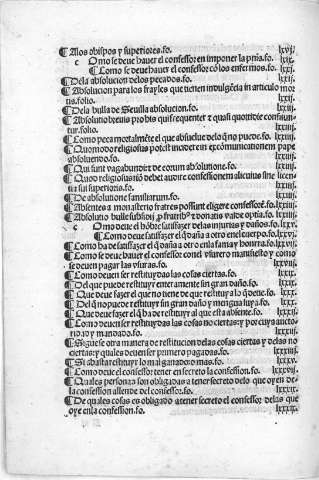 ¶ Alos obispos y superiores.fo. lxvij.
c Omo se deue hauer el confessor en imponer la pnia.fo. lxix.
¶ Como se deue hauer el confessor cō los enfermos.fo. lxxj.
¶ Dela absolucion delos pecados.fo. lxxij.
¶ Absolucion para los frayles que tienen indulgēcia in articulo mortis.folio. lxxij.
¶ Dela bulla de Seuilla absolucion.fo. lxxiij.
¶ Absolutio breuis pro his qui frequenter
tur.folio. lxxiij.
¶ Como peca mortalmēte el que absuelue delo q̄ no puede.fo. lxxiij.
¶ Quomodo religiosus potest
absoluendo.fo. lxxiij.
¶ Qui sunt vagabundi de eorum absolutione.fo. lxxiij.
¶ Quod religiosus nō debet audire confessionem alicuius sine licentia sui superioris.fo. lxxiij.
¶ De absolutione familiarum.fo. lxxiij.
¶ Absentes a monasterio fratres possunt eligere confessorē.fo. lxxiiij.
¶ Absolutio bulle
c Omo deue el hōbre satisfazer delas injurias y daños.fo. lxxv.
¶ Como ha de satisfazer el q̄ daña a otro enel cuerpo.fo. lxxv.
¶ Como ha de satisfazer el q̄ daña a otro enla fama y honrra.fo. lxxvj.
¶ Como se deue hauer el confessor conel vsurero manifiesto y como
se deuen pagar las vsuras.fo. lxxviij.
¶ Como deuen ser restituydas las cosas ciertas.fo. lxxix.
¶ Del que puede restituyr enteramente sin gran daño.fo. lxxx.
¶ Que deue fazer el que no tiene de que restituya lo q̄ deue.fo. lxxx.
¶ Del q̄ no puede restituyr sin gran daño y mengua suya.fo. lxxxj.
¶ Que deue fazer el q̄ ha de restituyr al que esta absente.fo. lxxxij.
¶ Como deuen ser restituydas las cosas no ciertas: y por cuya auctoridad y mandado.fo.
¶ Sigue se otra manera de restitucion delas cosas ciertas y delas no
ciertas: y quales deuen ser primero pagados.fo.
¶ Si abasta restituyr lo mal ganado o mas.fo.
¶ Como deue el confessor tener en secreto la confession.fo. lxxxvij.
¶ Quales personas son obligadas a tener secreto delo que oyen dela confession allende del confessor.fo.
¶ De quales cosas es obligado a tener secreto el confessor delas que
oye enla confession.fo. lxxxix.